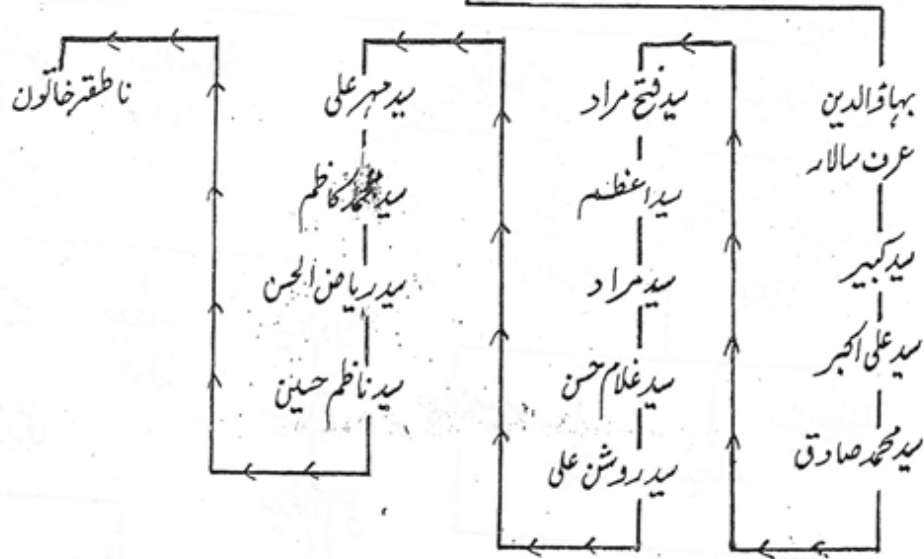 بہاؤالدین
عرف سالار
سید کبیر
سید علی اکبر
سید محمد صادق
سید فتح مراد
سید اعظم
سید مراد
سید غلام حسن
سید روشن علی
سید مہر علی
سید محمد کاظم
سید ریاض الحسن
سید ناظم حسین
ناطقہ خاتون